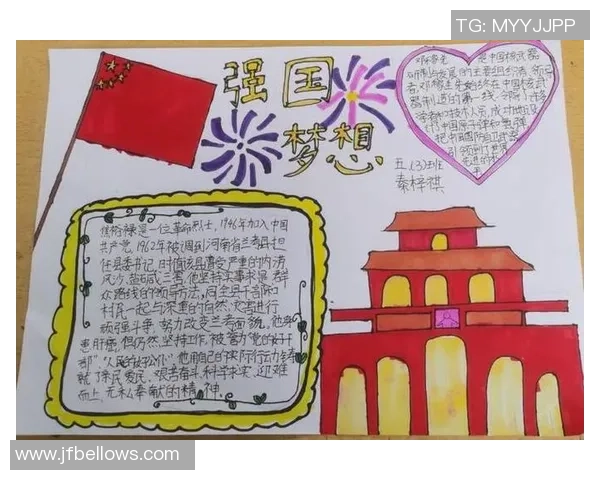 TG: MYYJJPP
强国
梦想
邓稼先 是中国核武器
研制与发展的主要组织者、领导
者,邓稼先始终在中国核武
器制造的第一线,
学者和技术人员,成功地
五(3)班
秦梓祺
焦裕禄是一位革命烈士,1946年加入中国
共产党,1962年被调到河南省兰考县担
任县委书记,时值该县遭受严重的内涝
风沙、盐碱三害,他坚持实事求是 群众
众路线的领导方法,同全县干部和
村民一起与深重的自然 灾害进行
顽强斗争,努力改变兰考面貌,他身
患肝癌,但仍然坚持工作,被誉为“党的好干
部”“人民的好公仆”他用自己的实际行动
就了亲民爱民、艰苦奋斗、科学求实、迎难
而上、无私奉献的精神。
www.jfbellows.com